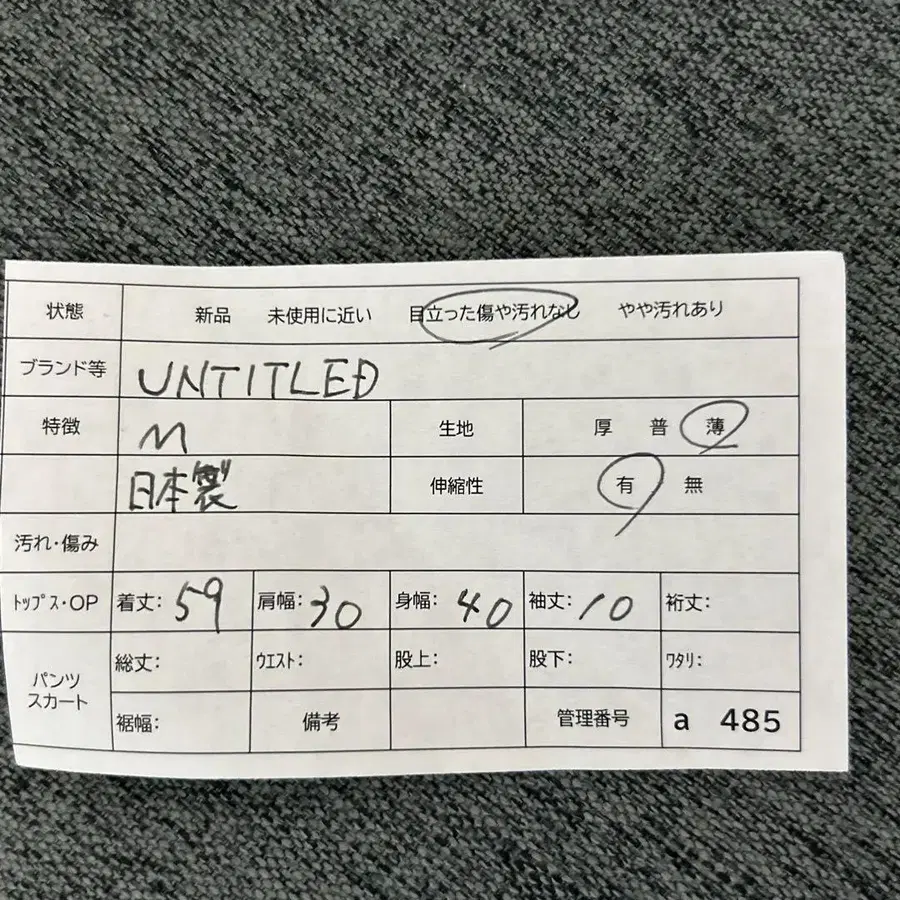 状態 新品 未使用に近い 目立った傷や汚れなし やや汚れあり
ブランド等 UNTITLED
特徴 M 生地 厚 普 薄
日本製 伸縮性 有 無
汚れ・傷み
トップス・OP 着丈: 59 肩幅: 30 身幅: 40 袖丈: 10 裄丈:
パンツ スカート 総丈: ウエスト: 股上: 股下: ワタリ:
裾幅: 備考 管理番号 a 485